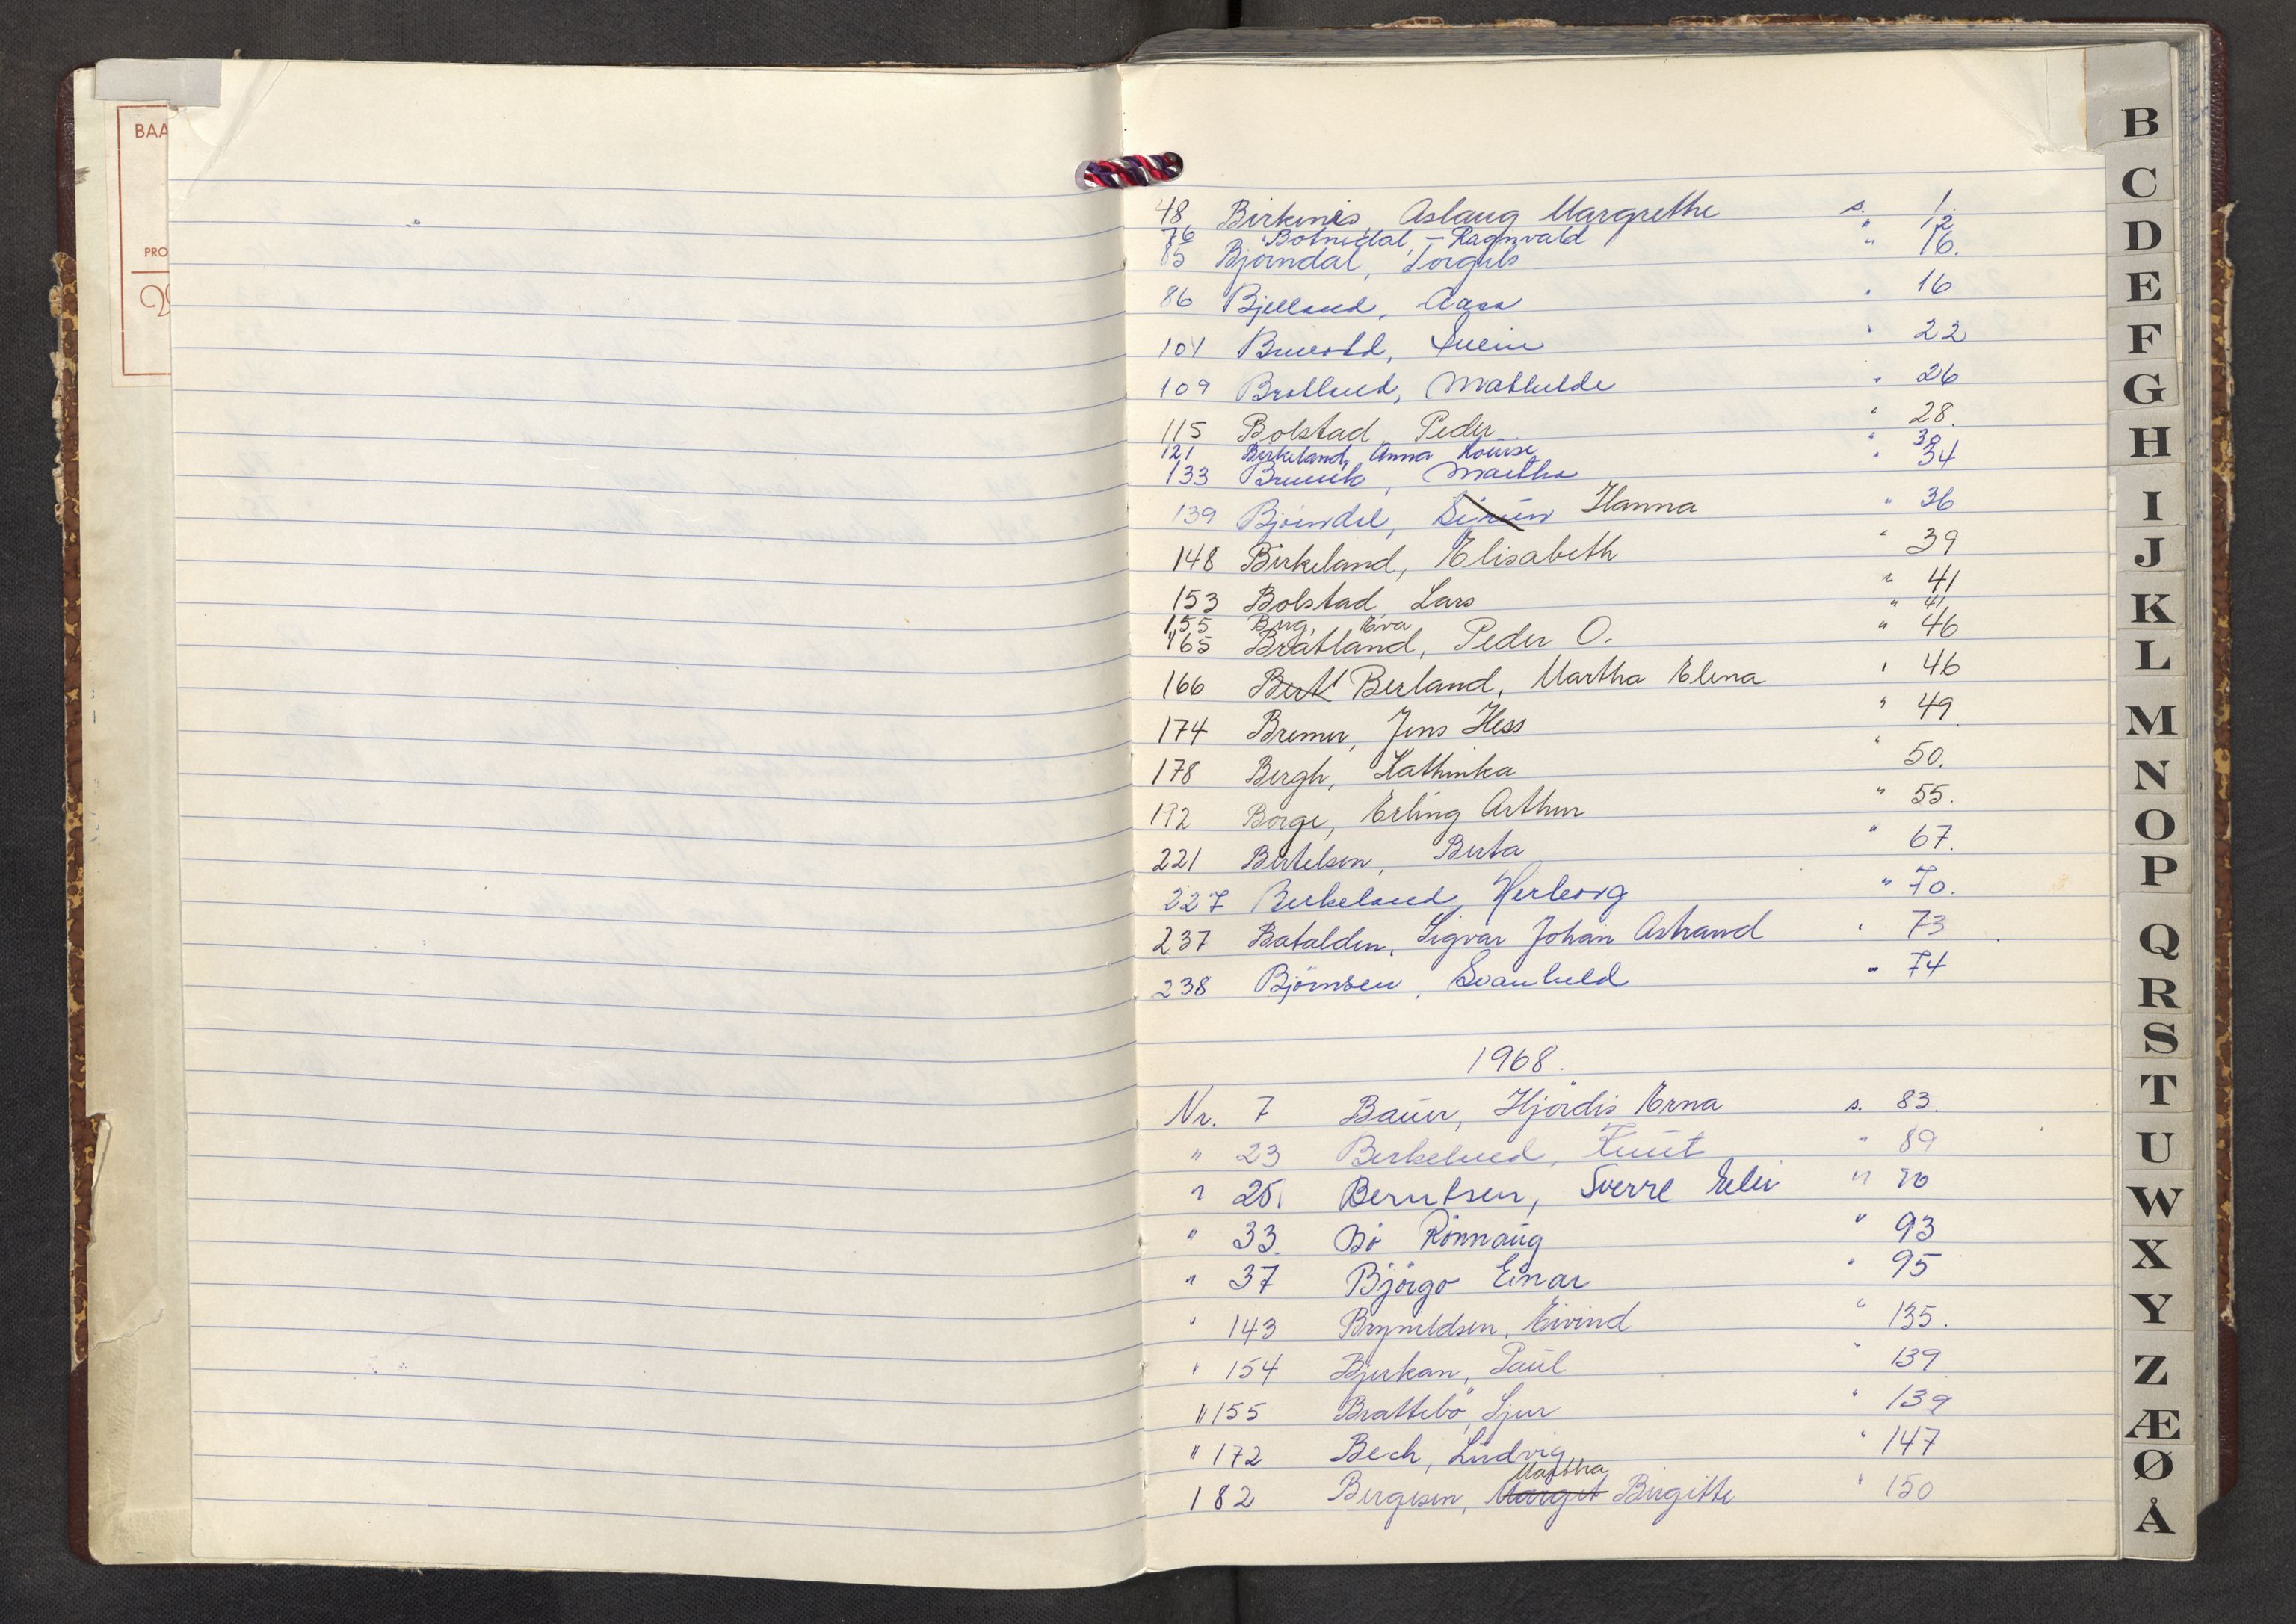 BAA
PRO
48 Birkenes, Aslaug Margrethe s. 1.
76 Botnedal, - Ragnvald " 12
85 Bjørndal, Torgils " 16.
86 Bjelland, Aasa " 16
104 Svein " 22
109 Bratland, Mathilde " 26
115 Bolstad, Peder " 28.
121 Birkeland, Anna Louise " 30
133 Martha " 34
139 Bjørndal, Hanna " 36
148 Birkeland, Elisabeth " 39
153 Bolstad, Lars " 41
155 Berg, Eva " 41
165 Bratland, Peder O. " 46
166 Berland, Martha Elena " 46
174 Bremer, Jens Hess " 49
178 Bergh, Kathinka " 50.
192 Borge, Erling Arthur " 55.
221 Bertelsen, Berta " 67.
227 Birkeland, Herborg " 70.
237 Batalden, Sigvar Johan Astrand " 73
238 Bjørnsen, Svanhild " 74
1968.
Nr. 7 Bauer, Hjördis Erna s. 83.
" 23 Birkeland, Knut " 89
" 25. Berntsen, Sverre " 90
" 33. Bö Rönnaug " 93
" 37 Björgo Einar " 95
" 143 Brynildsen, Eivind " 135.
" 154 Bjerkan, Paul " 139
" 155 Brattebö, Sjur " 139
" 172 Bech, Ludvig " 147
Martha
182 Bergesen, Marget Birgitte " 150
B
C
D
E
F
G
H
I
J
K
L
M
N
O
P
Q
R
S
T
U
W
X
Y
Z
Æ
Ø
Å